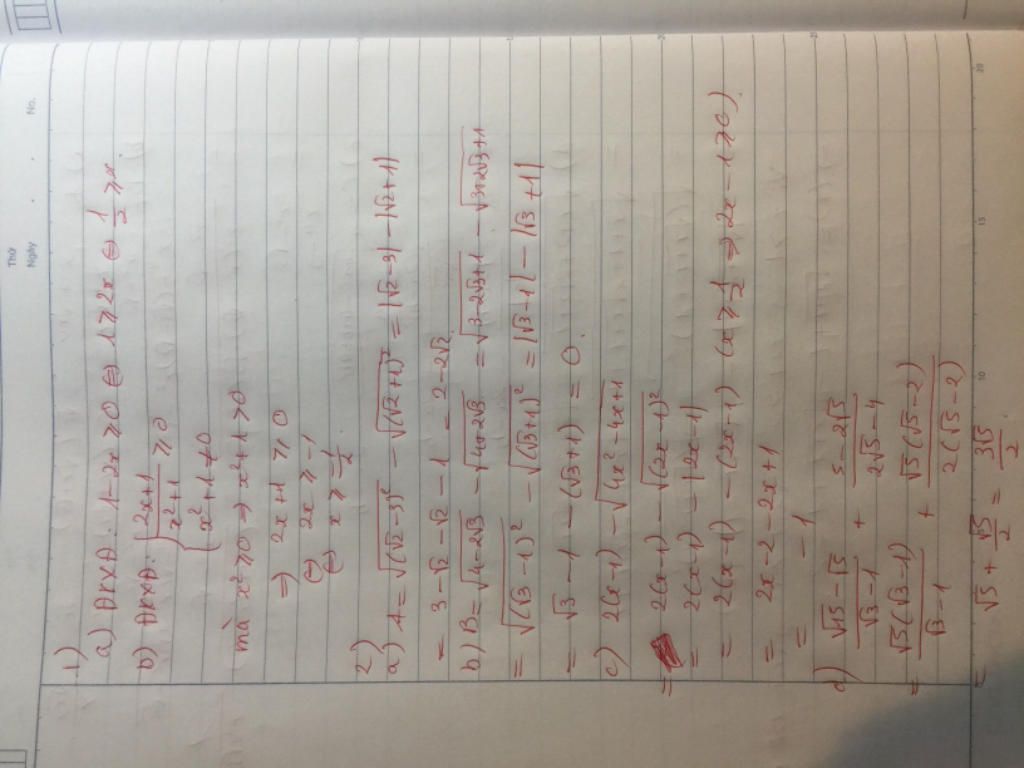 Thứ
Ngày
No.
1)
a) ĐKXĐ: 1-2x ≥ 0 ⇔ 1 ≥ 2x ⇔ 1/2 ≥ x.
b) ĐKXĐ: { (2x+1)/(x²+1) ≥ 0
{ x²+1 ≠ 0
mà x² ≥ 0 ⇒ x²+1 > 0
⇒ 2x+1 ≥ 0
⇔ 2x ≥ -1
⇔ x ≥ -1/2
2)
a) A = √((√2-3)²) - √((√2+1)²) = |√2-3| - |√2+1|
= 3-√2-√2-1 = 2-2√2
b) B = √(4-2√3) - √(4+2√3) = √(3-2√3+1) - √(3+2√3+1)
= √((√3-1)²) - √((√3+1)²) = |√3-1| - |√3+1|
= √3-1-(√3+1) = 0.
c) 2(x-1) - √(4x²-4x+1)
= 2(x-1) - √((2x-1)²)
= 2(x-1) - |2x-1|
= 2(x-1) - (2x-1) (x ≥ 1/2 ⇒ 2x-1 ≥ 0)
= 2x-2-2x+1
= -1
d) (√15-√5)/(√3-1) + (5-2√5)/(2√5-4)
= √5(√3-1)/(√3-1) + √5(√5-2)/(2(√5-2))
= √5 + √5/2 = 3√5/2
10
15
20